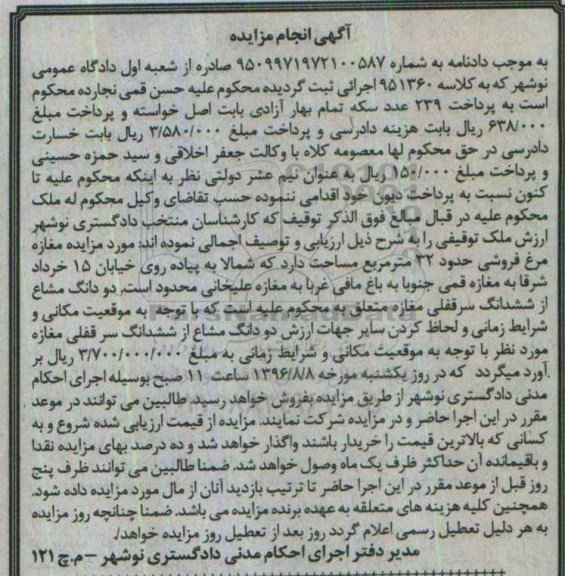 آگهی انجام مزایده
به موجب دادنامه به شماره ۹۵۰۹۹۷۱۹۷۲۱۰۰۵۸۷ صادره از شعبه اول دادگاه عمومی
نوشهر که به کلاسه ۹۵۱۳۶۰ اجرائی ثبت گردیده محکوم علیه حسن قمی نجارده محکوم
است به پرداخت ۲۳۹ عدد سکه تمام بهار آزادی بابت اصل خواسته و پرداخت مبلغ
۶۳۸/۰۰۰ ریال بابت هزینه دادرسی و پرداخت مبلغ ۳/۵۸۰/۰۰۰ ریال بابت خسارت
دادرسی در حق محکوم لها معصومه کلاه با وکالت جعفر اخلاقی و سید حمزه حسینی
و پرداخت مبلغ ۱۵۰/۰۰۰ ریال به عنوان نیم عشر دولتی نظر به اینکه محکوم علیه تا
کنون نسبت به پرداخت دیون خود اقدامی ننموده حسب تقاضای وکیل محکوم له ملک
محکوم علیه در قبال مبالغ فوق الذکر توقیف که کارشناسان منتخب دادگستری نوشهر
ارزش ملک توقیفی را به شرح ذیل ارزیابی و توصیف اجمالی نموده اند: مورد مزایده مغازه
مرغ فروشی حدود ۳۲ مترمربع مساحت دارد که شمالا به پیاده روی خیابان ۱۵ خرداد
شرقا به مغازه قمی جنوبا به باغ مافی غربا به مغازه علیخانی محدود است. دو دانگ مشاع
از ششدانگ سرقفلی مغازه متعلق به محکوم علیه است که با توجه به موقعیت مکانی و
شرایط زمانی و لحاظ کردن سایر جهات ارزش دو دانگ مشاع از ششدانگ سر قفلی مغازه
مورد نظر با توجه به موقعیت مکانی و شرایط زمانی به مبلغ ۳/۷۰۰/۰۰۰/۰۰۰ ریال بر
آورد میگردد که در روز یکشنبه مورخه ۱۳۹۶/۸/۸ ساعت ۱۱ صبح بوسیله اجرای احکام
مدنی دادگستری نوشهر از طریق مزایده بفروش خواهد رسید. طالبین می توانند در موعد
مقرر در این اجرا حاضر و در مزایده شرکت نمایند. مزایده از قیمت ارزیابی شده شروع و به
کسانی که بالاترین قیمت را خریدار باشند واگذار خواهد شد و ده درصد بهای مزایده نقدا
و باقیمانده آن حداکثر ظرف یک ماه وصول خواهد شد. ضمنا طالبین می توانند ظرف پنج
روز قبل از موعد مقرر در این اجرا حاضر تا ترتیب بازدید آنان از مال مورد مزایده داده شود.
همچنین کلیه هزینه های متعلقه به عهده برنده مزایده می باشد. ضمنا چنانچه روز مزایده
به هر دلیل تعطیل رسمی اعلام گردد روز بعد از تعطیل روز مزایده خواهد/.
مدیر دفتر اجرای احکام مدنی دادگستری نوشهر – م.چ ۱۲۱